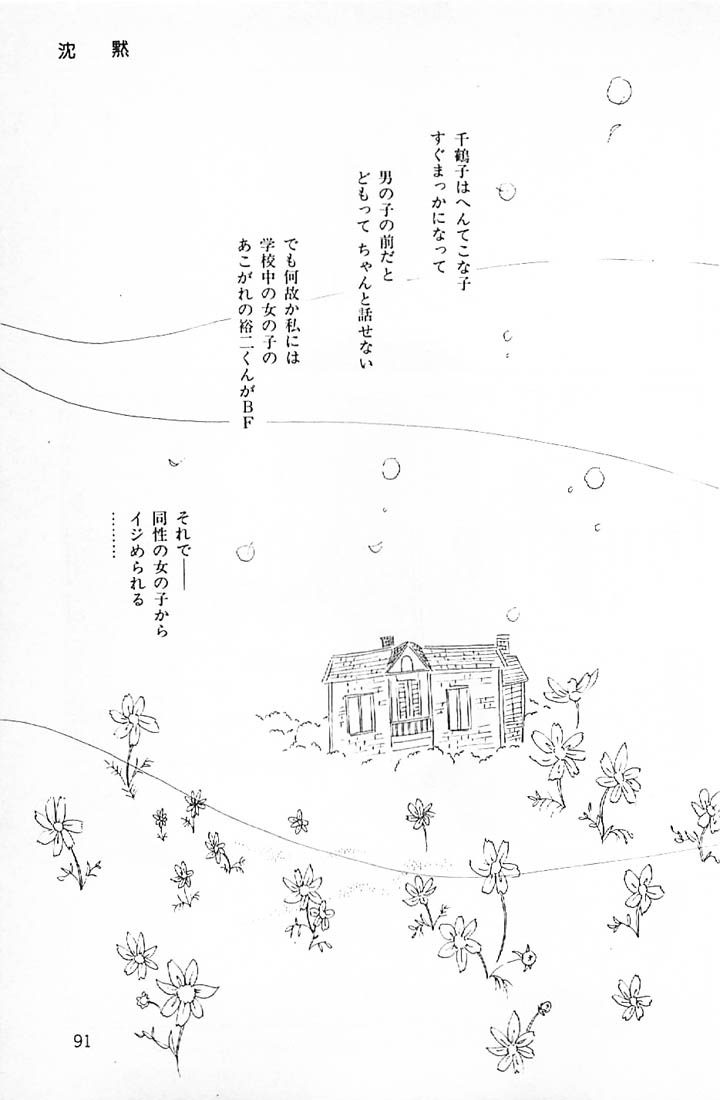 沈黙
千鶴子はへんてこな子
すぐまっかになって
男の子の前だと
どもって ちゃんと話せない
でも何故か私には
学校中の女の子の
あこがれの裕二くんがBF
それで——
同性の女の子から
イジめられる
………
91